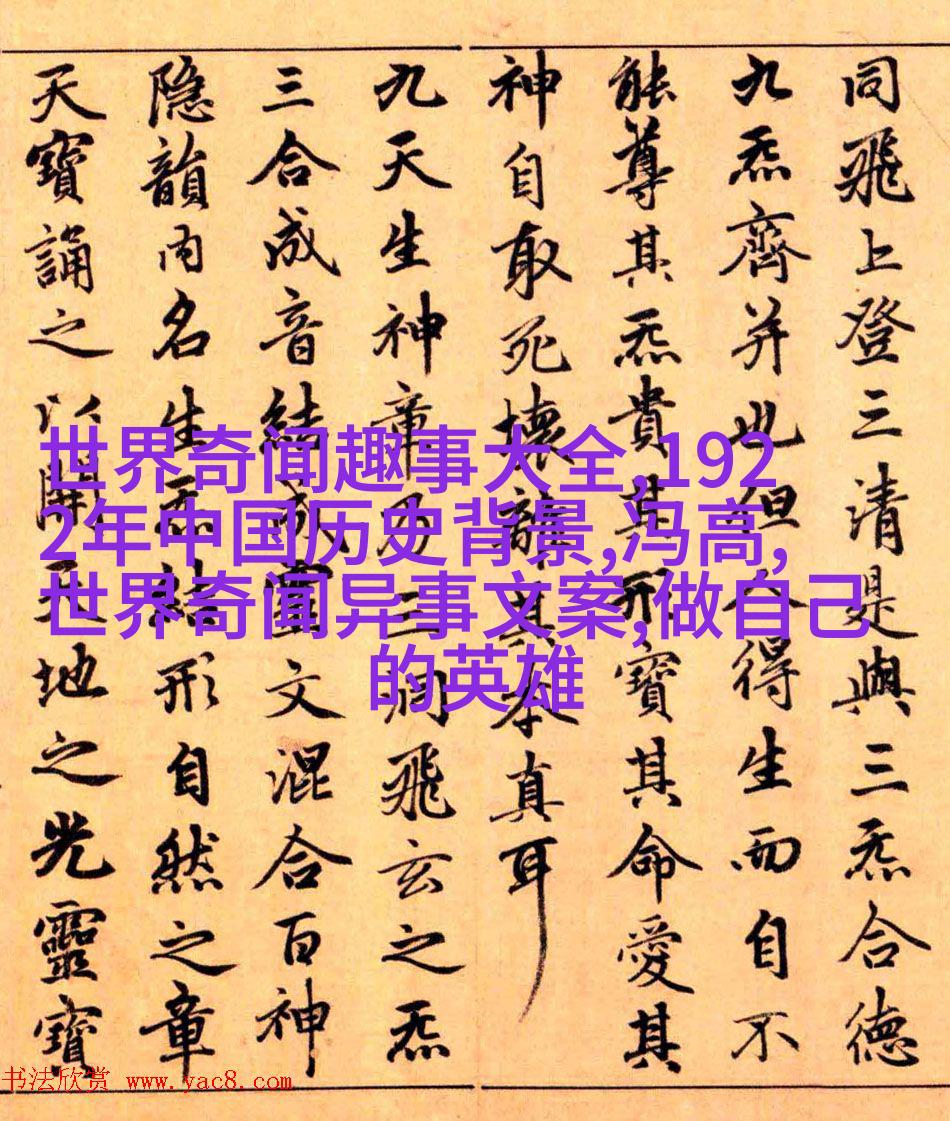 同飛上登三清是與三炁合德
九炁齊并也但人得生而自不
能尊其炁貴其形寶其命愛其
神自取死壞離其本真耳
九天生神章乃三洞飛玄之炁
三合成音結成靈文混合百神
隐韻内名生炁結形自然之章
天寶誦之以開天地之光靈寶
世界奇闻趣事大全,192
2年中国历史背景,冯高,
世界奇闻异事文案,做自己
的英雄
书法欣赏 www.yac8.com